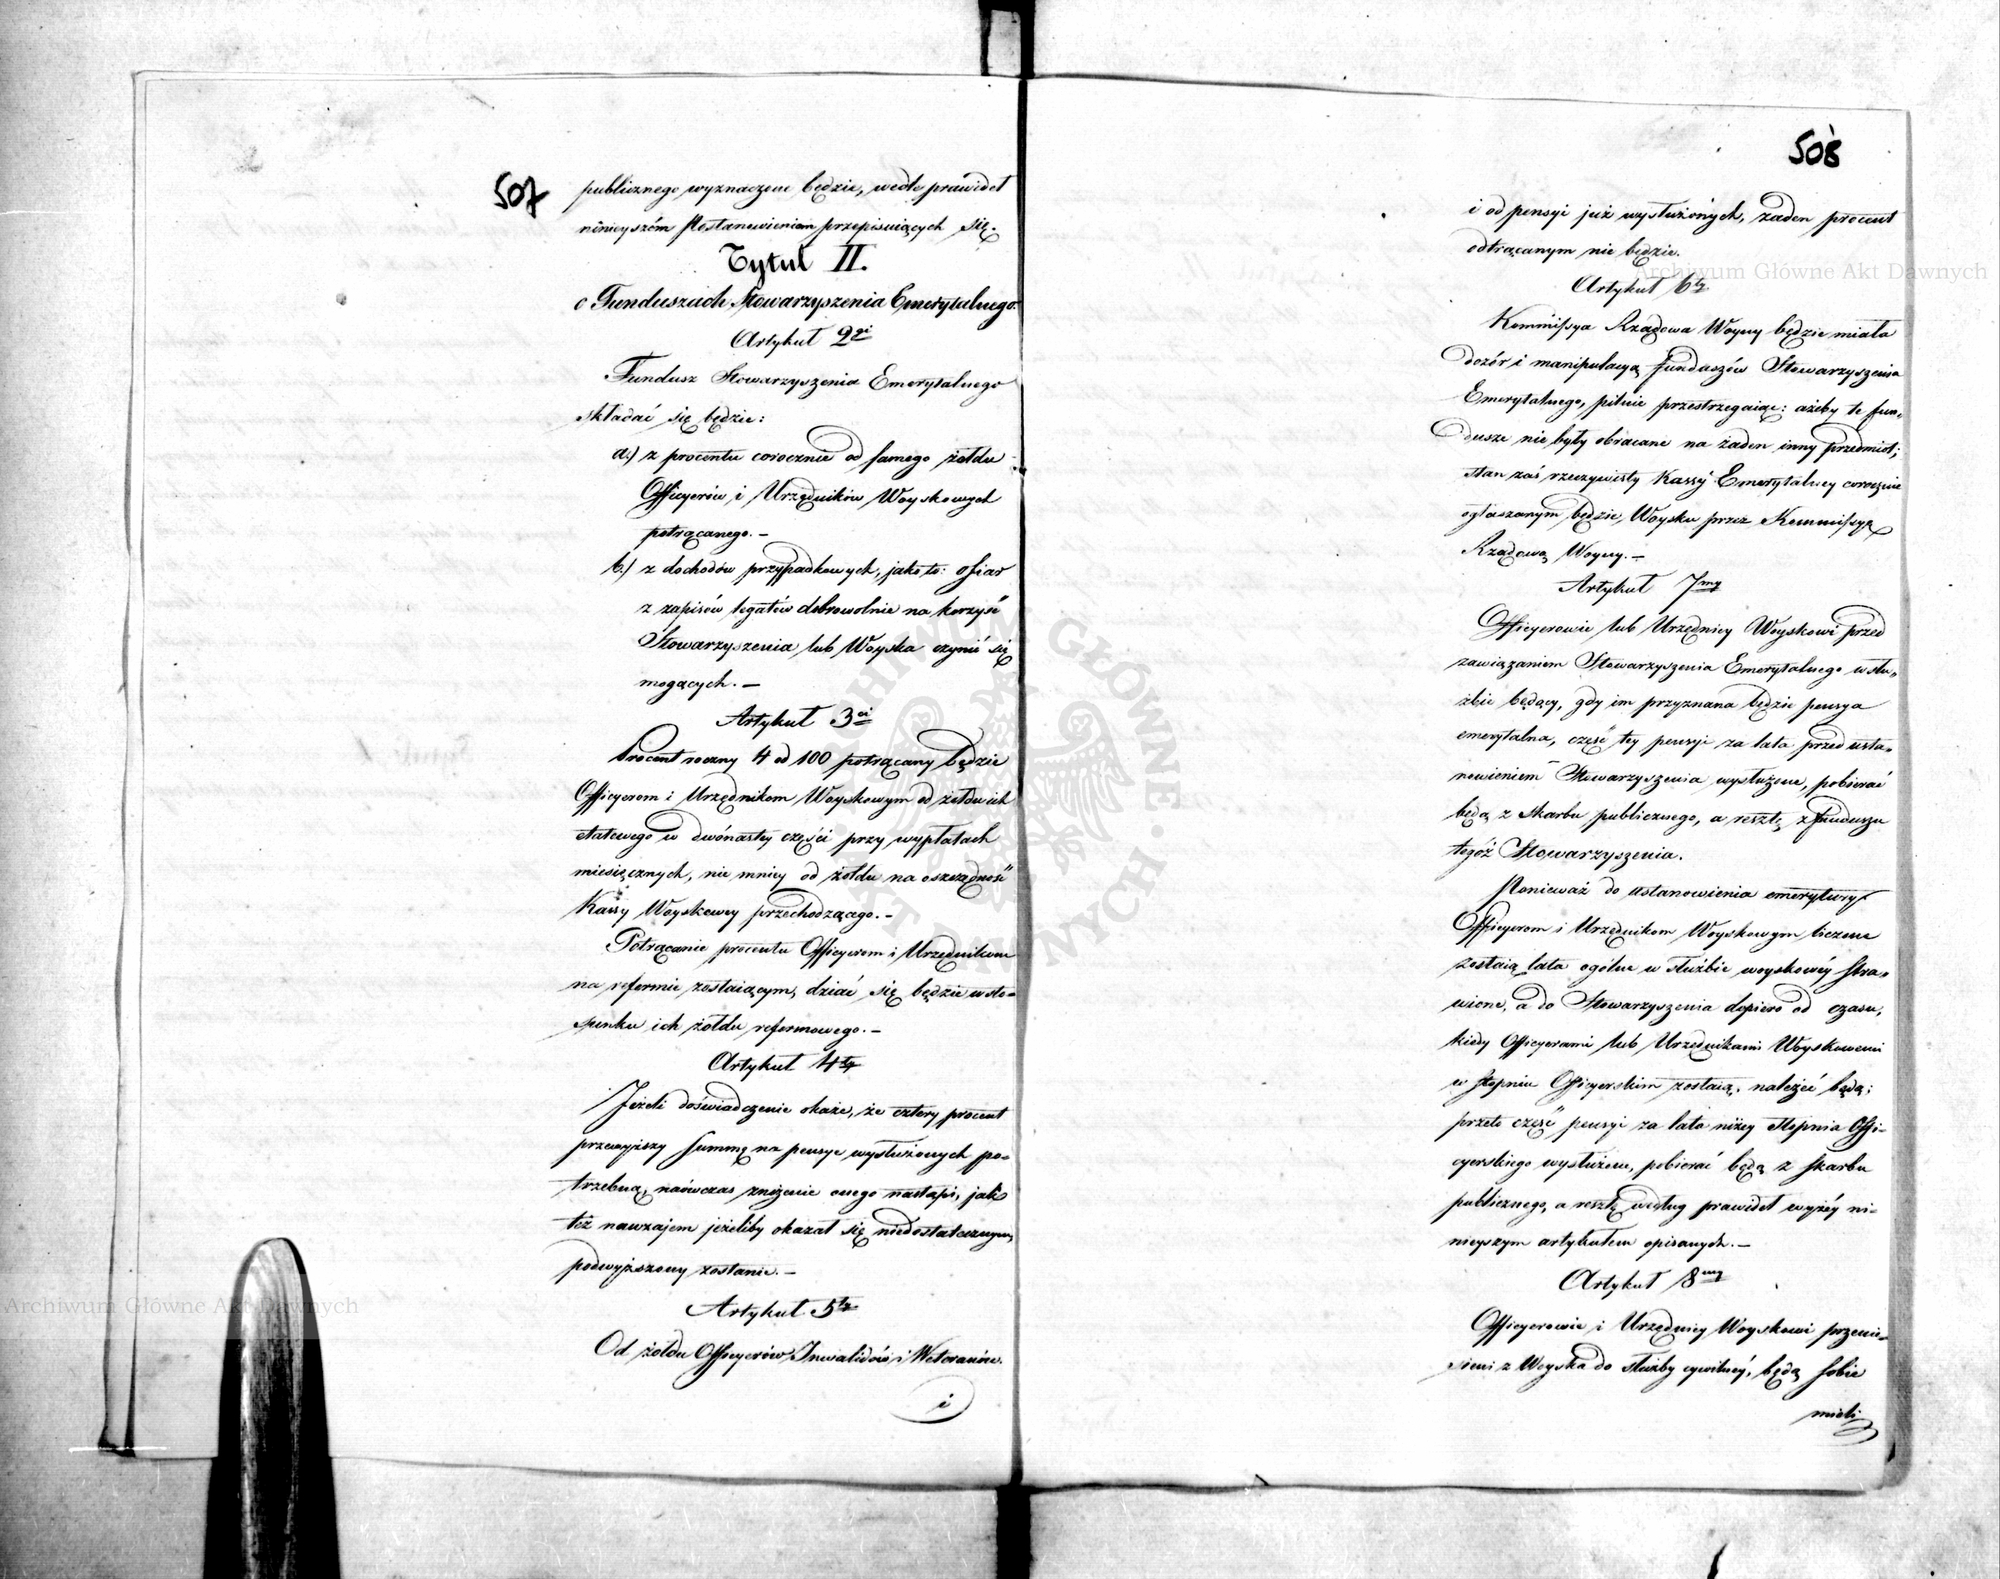 507
publicznego wyznaczone będzie, wedle prawideł
ninieyszém Postanowieniem przepisuiących się.
Tytuł II.
o Funduszach Stowarzyszenia Emerytalnego.
Artykuł 2gi
Fundusz Stowarzyszenia Emerytalnego
składać się będzie:
a.) z procentu corocznie od samego żołdu
Officyerów i Urzędników Woyskowych
potrącanego. —
b.) z dochodów przypadkowych, jako to: ofiar
z zapisów legatów dobrowolnie na korzyść
Stowarzyszenia lub Woyska czynić się
mogących. —
Artykuł 3ci
Procent roczny 4 od 100 potrącany będzie
Officyerom i Urzędnikom Woyskowym od żołdu ich
etatowego w dwónastey części przy wypłatach
miesięcznych, nie mniey od żołdu na oszczędność
Kassy Woyskowey przechodzącego. —
Potrącanie procentu Officyerom i Urzędnikom
na reformie zostaiącym, dziać się będzie w sto-
sunku ich żołdu reformowego. —
Artykuł 4ty
Jeżeli doświadczenie okaże, że cztery procent
przewyższy summę na pensye wysłużonych po-
trzebną, naówczas zniżenie onego nastąpi, jak
też nawzajem jeżeliby okazał się niedostatecznym,
podwyższony zostanie. —
Artykuł 5ty
Od żołdu Officyerów Inwalidów i Weteranów.
i
508
i od pensyi już wysłużonych, żaden procent
odtrącanym nie będzie.
Artykuł 6ty
Kommissya Rządowa Woyny będzie miała
dozór i manipulacyą funduszów Stowarzyszenia
Emerytalnego, pilnie przestrzegaiąc: ażeby te fun-
dusze nie były obracane na żaden inny przedmiot;
stan zaś rzeczywisty Kassy Emerytalney corocznie
ogłaszanym będzie Woysku przez Kommissyą
Rządową Woyny. —
Artykuł 7my
Officyerowie lub Urzędnicy Woyskowi przed
zawiązaniem Stowarzyszenia Emerytalnego w słu-
żbie będący, gdy im przyznana będzie pensya
emerytalna, część tey pensyi za lata przed usta-
nowieniem Stowarzyszenia wysłużone, pobierać
będą z Skarbu publicznego, a resztę z funduszu
tegóż Stowarzyszenia.
Ponieważ do ustanowienia emerytury
Officyerom i Urzędnikom Woyskowym liczone
zostaią lata ogólne w służbie woyskowéy stra-
wione, a do Stowarzyszenia dopiero od czasu,
kiedy Officyerami lub Urzędnikami Woyskowemi
w stopniu Officyerskim zostaią, należeć będą;
przeto część pensyi za lata niżey Stopnia Offi-
cyerskiego wysłużone, pobierać będą z skarbu
publicznego, a resztę według prawideł wyżéy ni-
nieyszym artykułem opisanych. —
Artykuł 8my
Officyerowie i Urzędnicy Woyskowi przenie-
sieni z Woyska do służby cywilnéy, będą sobie
mieli
Archiwum Główne Akt Dawnych
Archiwum Główne Akt Dawnych
ARCHIWUM GŁÓWNE AKT DAWNYCH